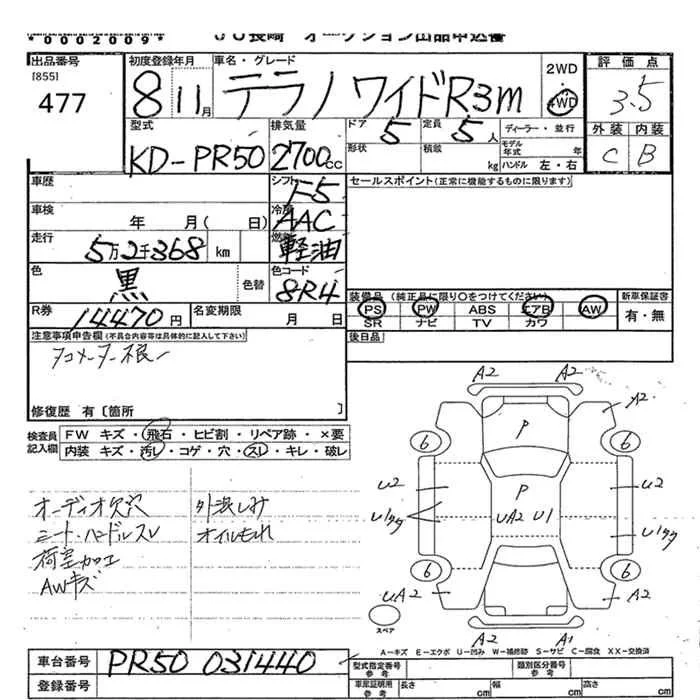 *0002009*
JU長崎 オークション出品申込書
出品番号
[855]
477
初度登録年月
8 11月
車名・グレード
テラノ ワイドR3m
2WD
4WD
評価点
3.5
外装 内装
C B
型式
KD-PR50
排気量
2700cc
ドア
5
形状
定員
5人
積載
kg
ディーラー・並行
モデル年式 年
ハンドル 左・右
車歴
シフト
F5
セールスポイント(正常に機能するものに限ります)
車検
年 月( 日)
AAC
走行
5万2千368 km
軽油
色
黒
色替
色コード
8R4
装備品(純正品に限り○をつけてください)
PS PW ABS エアB AW
SR ナビ TV カワ
新車保証書
有・無
R券
14470円
名変期限
月 日
後日品
注意事項申告欄(不具合内容等は具体的に記入して下さい)
修復歴 有〔箇所 〕
検査員記入欄
FW キズ・飛石・ヒビ割・リペア跡・×要
内装 キズ・汚レ・コゲ・穴・スレ・キレ・破レ
オーディオ欠品
シート・ハンドルスレ
荷室加工
AWキズ
外装しみ
オイルもれ
A2
A2
P
6 6
U2 P U2
UA2 U1
6 6
UA2 A2
A2 A1
スペア
A-キズ E-エクボ U-凹み W-補修跡 S-サビ C-腐食 XX-交換済
車台番号
PR50 031440
登録番号
型式指定番号
参考
類別区分番号
参考
車庫証明用
参考
長さ cm
幅 cm
高さ cm